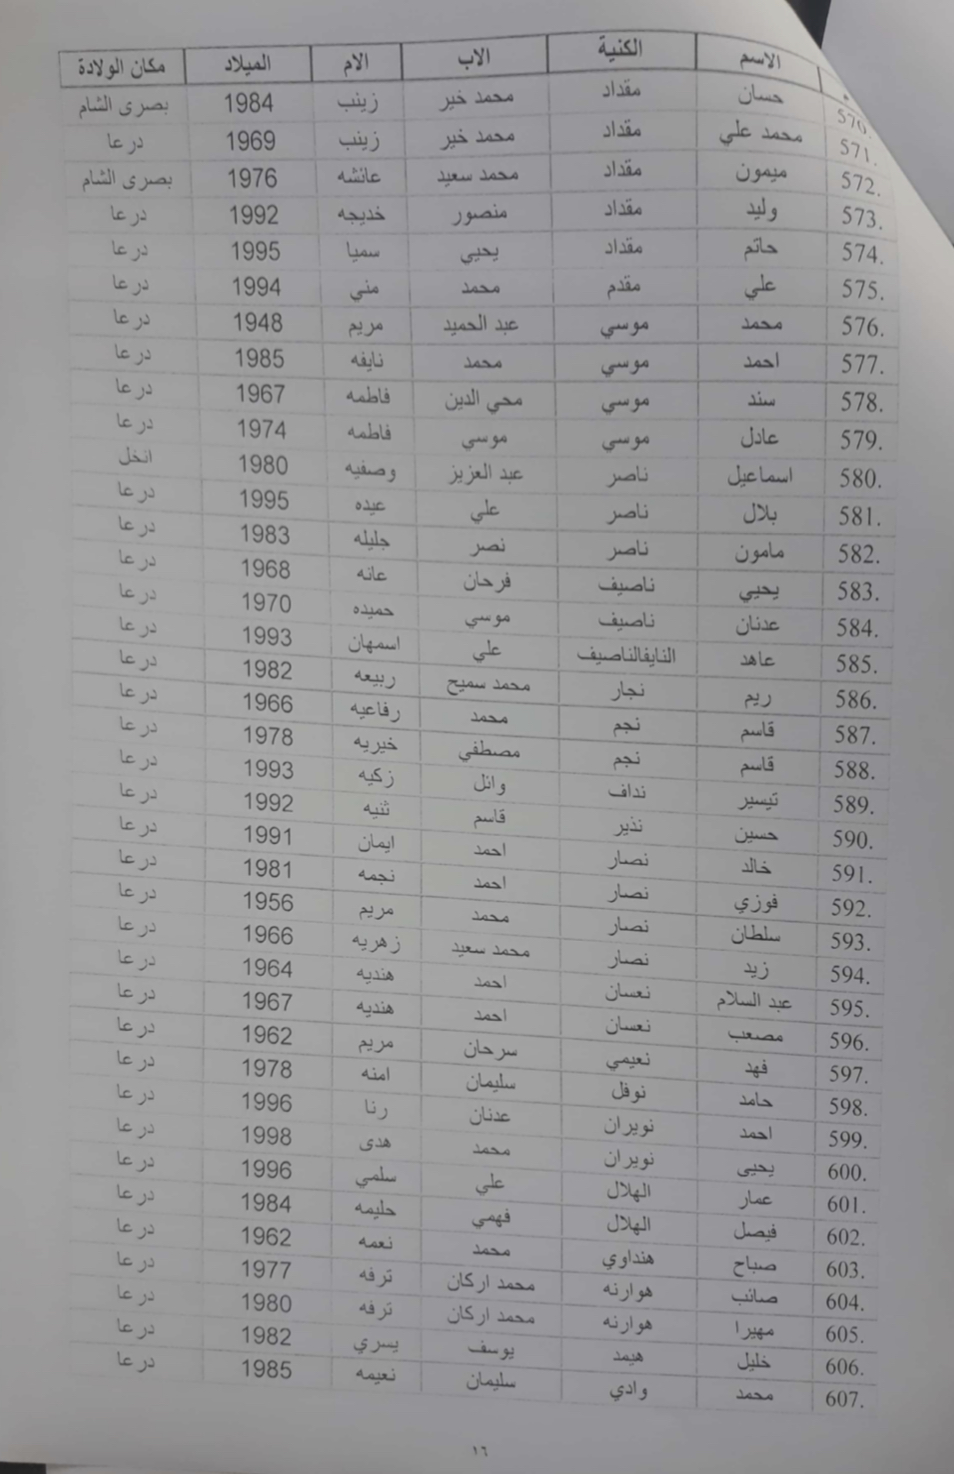 م الاسم الكنية الاب الام الميلاد مكان الولادة
570. حسان مقداد محمد خير زينب 1984 بصرى الشام
571. محمد علي مقداد محمد خير زينب 1969 درعا
572. ميمون مقداد محمد سعيد عائشه 1976 بصرى الشام
573. وليد مقداد منصور خديجه 1992 درعا
574. حاتم مقداد يحيي سميا 1995 درعا
575. علي مقدم محمد مني 1994 درعا
576. محمد موسي عبد الحميد مريم 1948 درعا
577. احمد موسي محمد نايفه 1985 درعا
578. سند موسي محي الدين فاطمه 1967 درعا
579. عادل موسي موسي فاطمه 1974 درعا
580. اسماعيل ناصر عبد العزيز وصفيه 1980 انخل
581. بلال ناصر علي عيده 1995 درعا
582. مامون ناصر نصر جليله 1983 درعا
583. يحيي ناصيف فرحان عانه 1968 درعا
584. عدنان ناصيف موسي حميده 1970 درعا
585. عاهد النايفالناصيف علي اسمهان 1993 درعا
586. ريم نجار محمد سميح ربيعه 1982 درعا
587. قاسم نجم محمد رفاعيه 1966 درعا
588. قاسم نجم مصطفي خيريه 1978 درعا
589. تيسير نداف وائل زكيه 1993 درعا
590. حسين نذير قاسم ثنيه 1992 درعا
591. خالد نصار احمد ايمان 1991 درعا
592. فوزي نصار احمد نجمه 1981 درعا
593. سلطان نصار محمد مريم 1956 درعا
594. زيد نصار محمد سعيد زهريه 1966 درعا
595. عبد السلام نعسان احمد هنديه 1964 درعا
596. مصعب نعسان احمد هنديه 1967 درعا
597. فهد نعيمي سرحان مريم 1962 درعا
598. حامد نوفل سليمان امنه 1978 درعا
599. احمد نويران عدنان رنا 1996 درعا
600. يحيى نويران محمد هدى 1998 درعا
601. عمار الهلال علي سلمي 1996 درعا
602. فيصل الهلال فهمي حليمه 1984 درعا
603. صباح هنداوي محمد نعمه 1962 درعا
604. صائب هوارنه محمد اركان ترفه 1977 درعا
605. مهيرا هوارنه محمد اركان ترفه 1980 درعا
606. خليل هيمد يوسف يسري 1982 درعا
607. محمد وادي سليمان نعيمه 1985 درعا
١٦